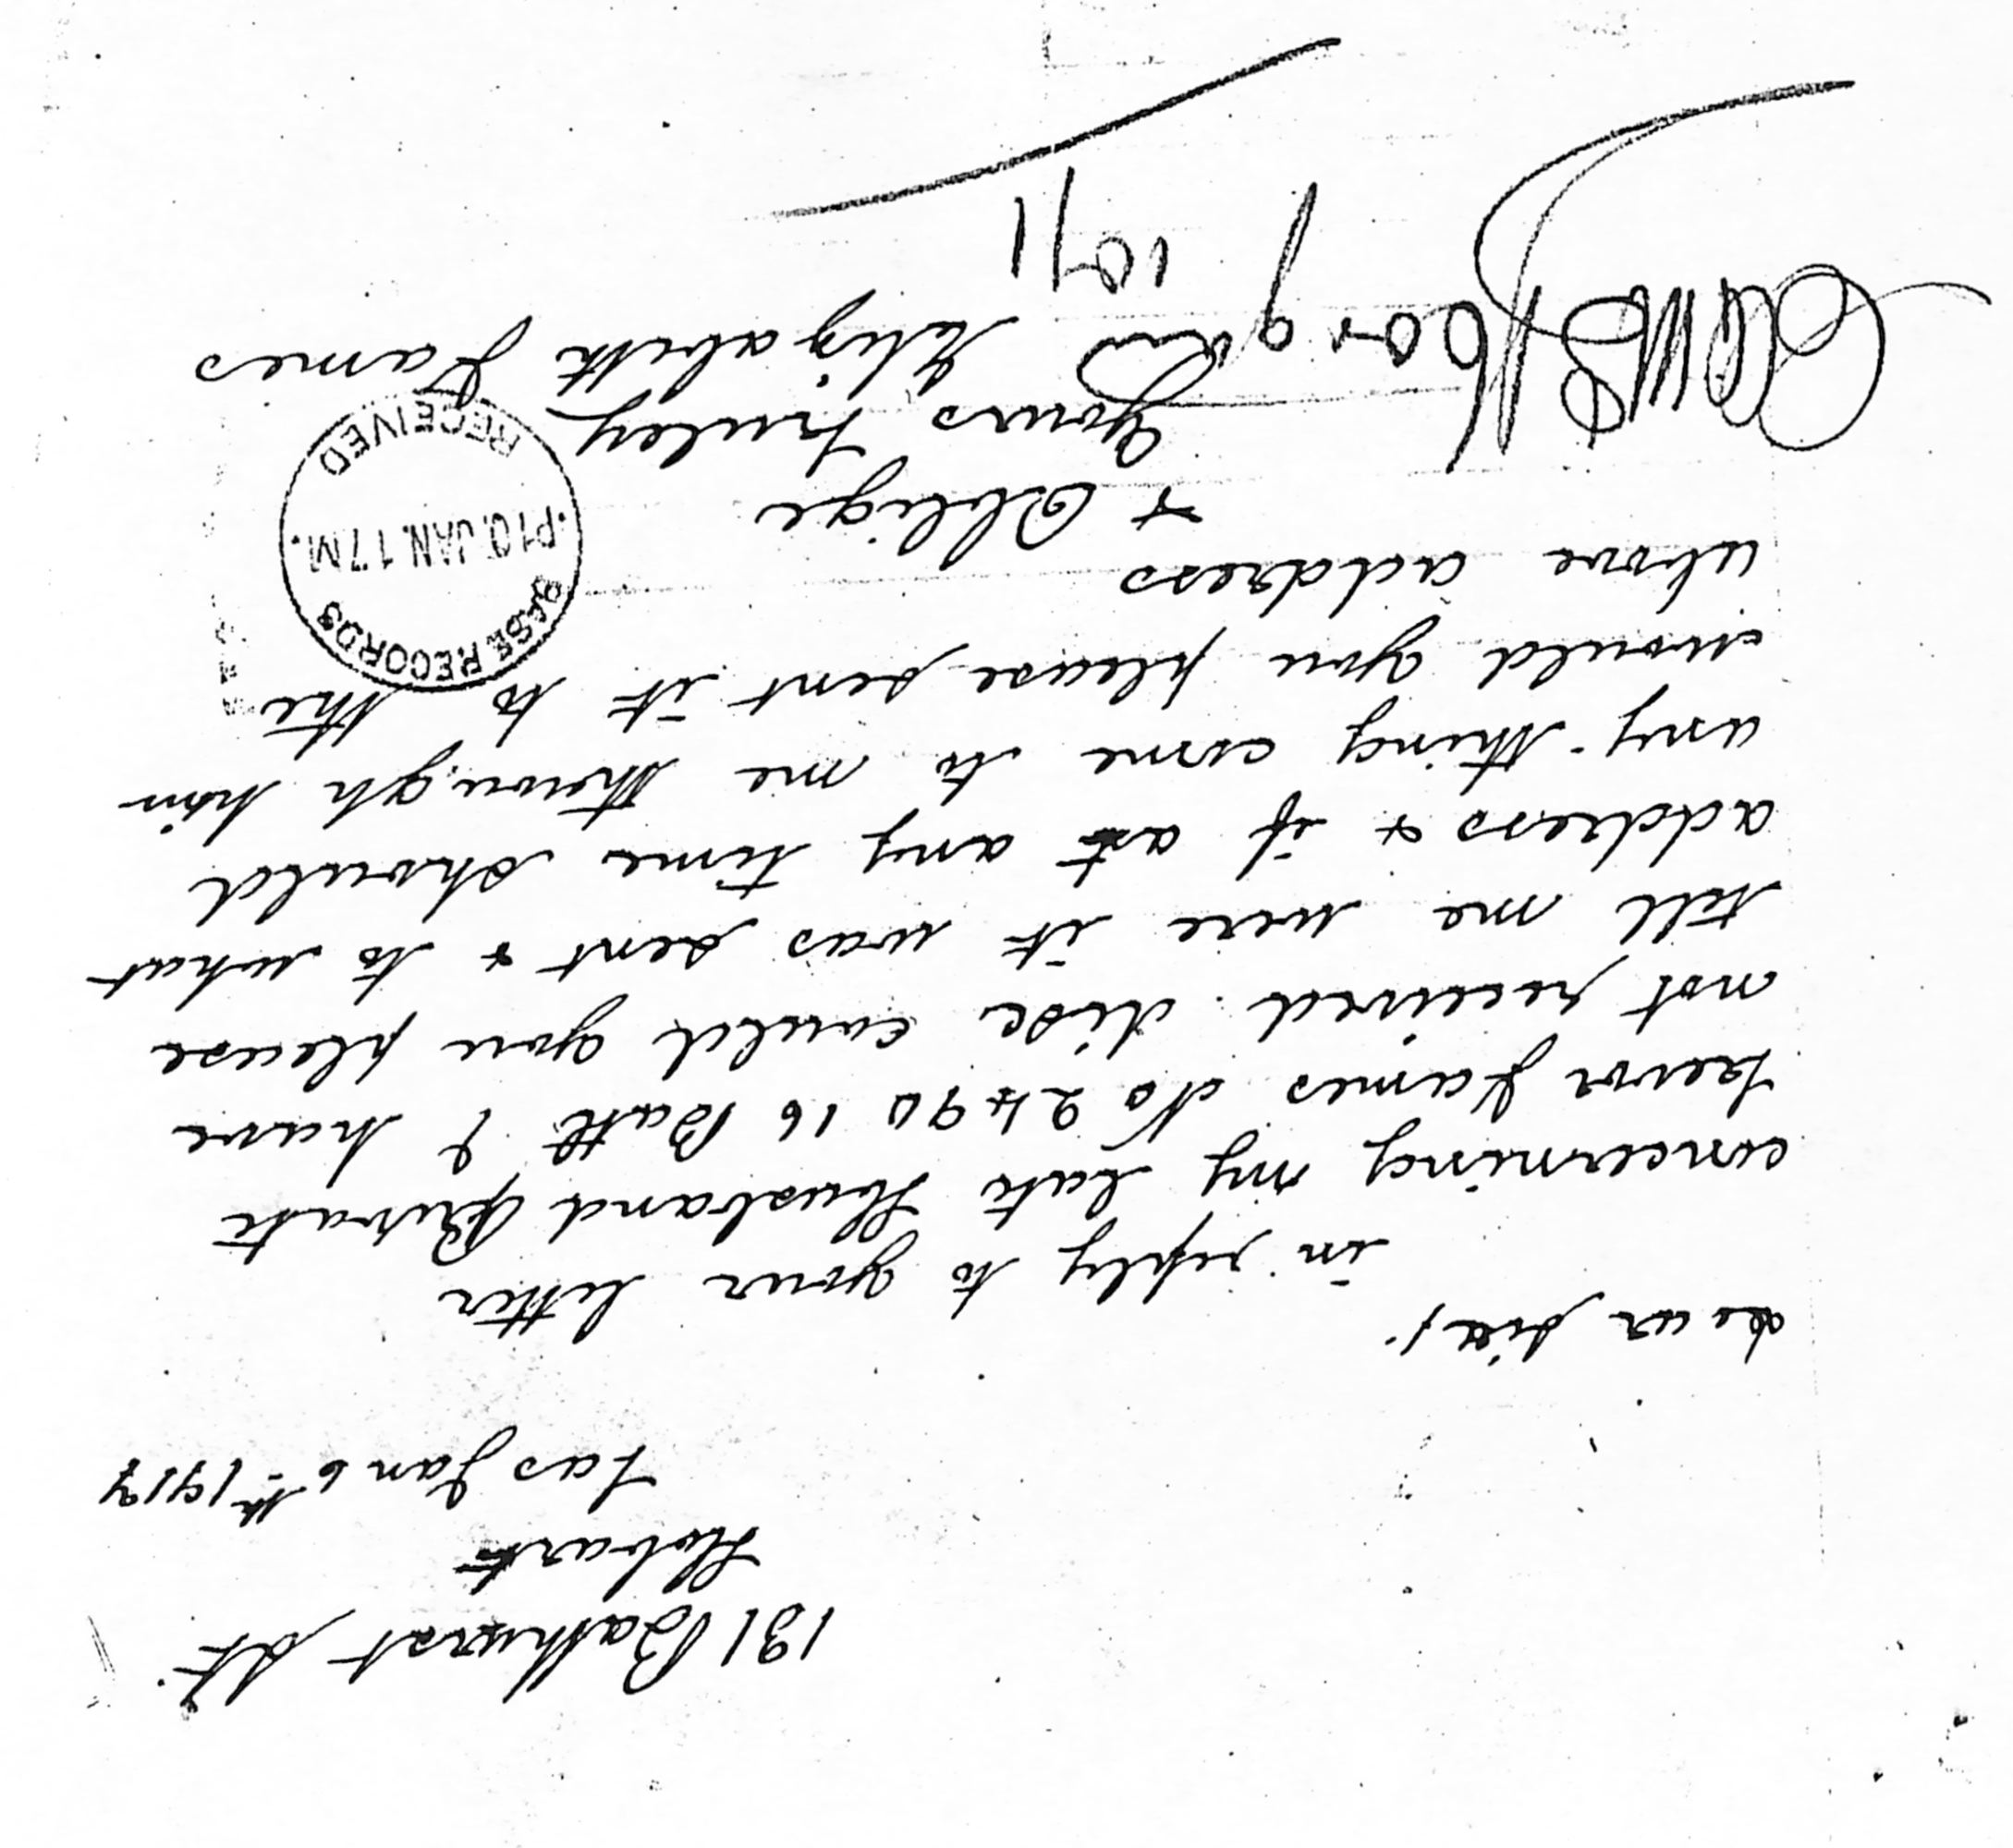 131 Bathurst St
Hobart
Tas Jan 6th 1917
dear sir,
in reply to your letter
concerning my late Husband Private
Trevor James No 2490 16 Batt I have
not received disc could you please
tell me were it was sent & to what
address & if at any time should
any-thing come to me through him
would you please sent it to the
above address
& Oblige
Yours truley
Elizabeth James
10/1
BASE RECORDS
P10.JAN.17M.
RECEIVED